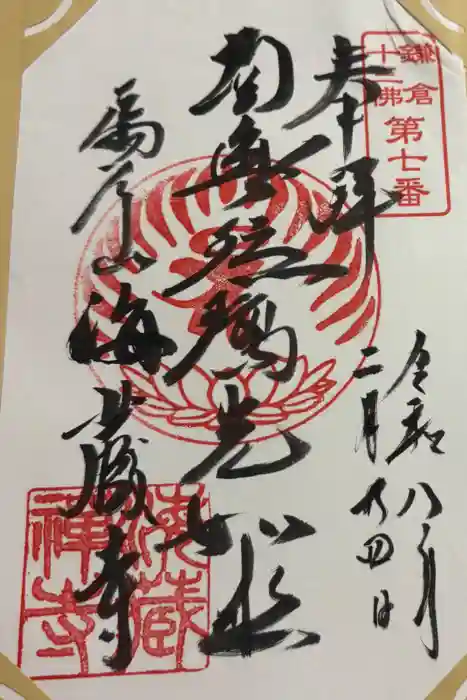 鎌倉
十三佛
第七番
奉拝
令和八年
二月廿四日
南無瑠璃光如来
扇谷山
海蔵寺
海藏
禪寺